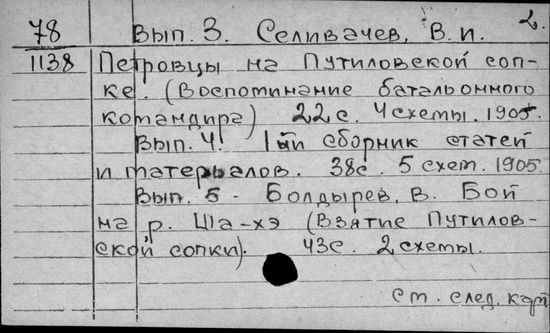 2.
78 Вып. 3. Селивачев, В. И.
1138 Петровцы на Путиловской соп-
ке. (Воспоминание батальонного
командира) 22 с. 4 схемы. 1905.
Вып. 4. 1ый сборник статей
и матерьалов. 38с. 5 схем. 1905.
Вып. 5 - Болдырев, В. Бой
на р. Ша-хэ (Взятие Путилов-
ской сопки). 43с. 2 схемы.
ст. след. карт